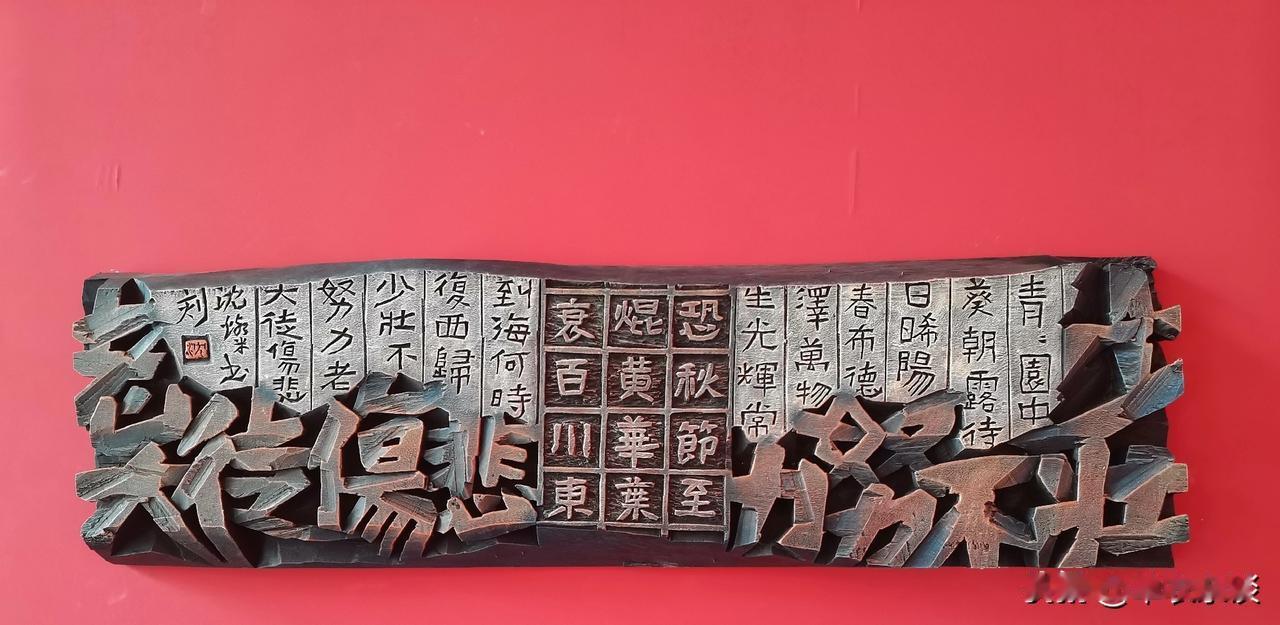 青〻園中
葵朝露待
日晞陽
春布德
澤萬物
生光輝常
恐秋節至
焜黃華葉
衰百川東
到海何時
復西歸
少壯不
努力老
大徒傷悲
沈书
刻
少壯不努力
老大徒傷悲